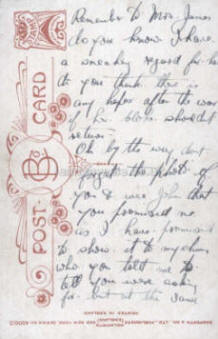 Remember to Mrs. James
do you know I have
a sneaky regard for her
do you think there is
any hopes after the war
if her bloke shouldnt
return
Oh by the way dont
forget the photo of
you & John that
you promised me
as I have promised
to show it to my chum
who you told me to
tell you were asking
for but at the same
POST CARD